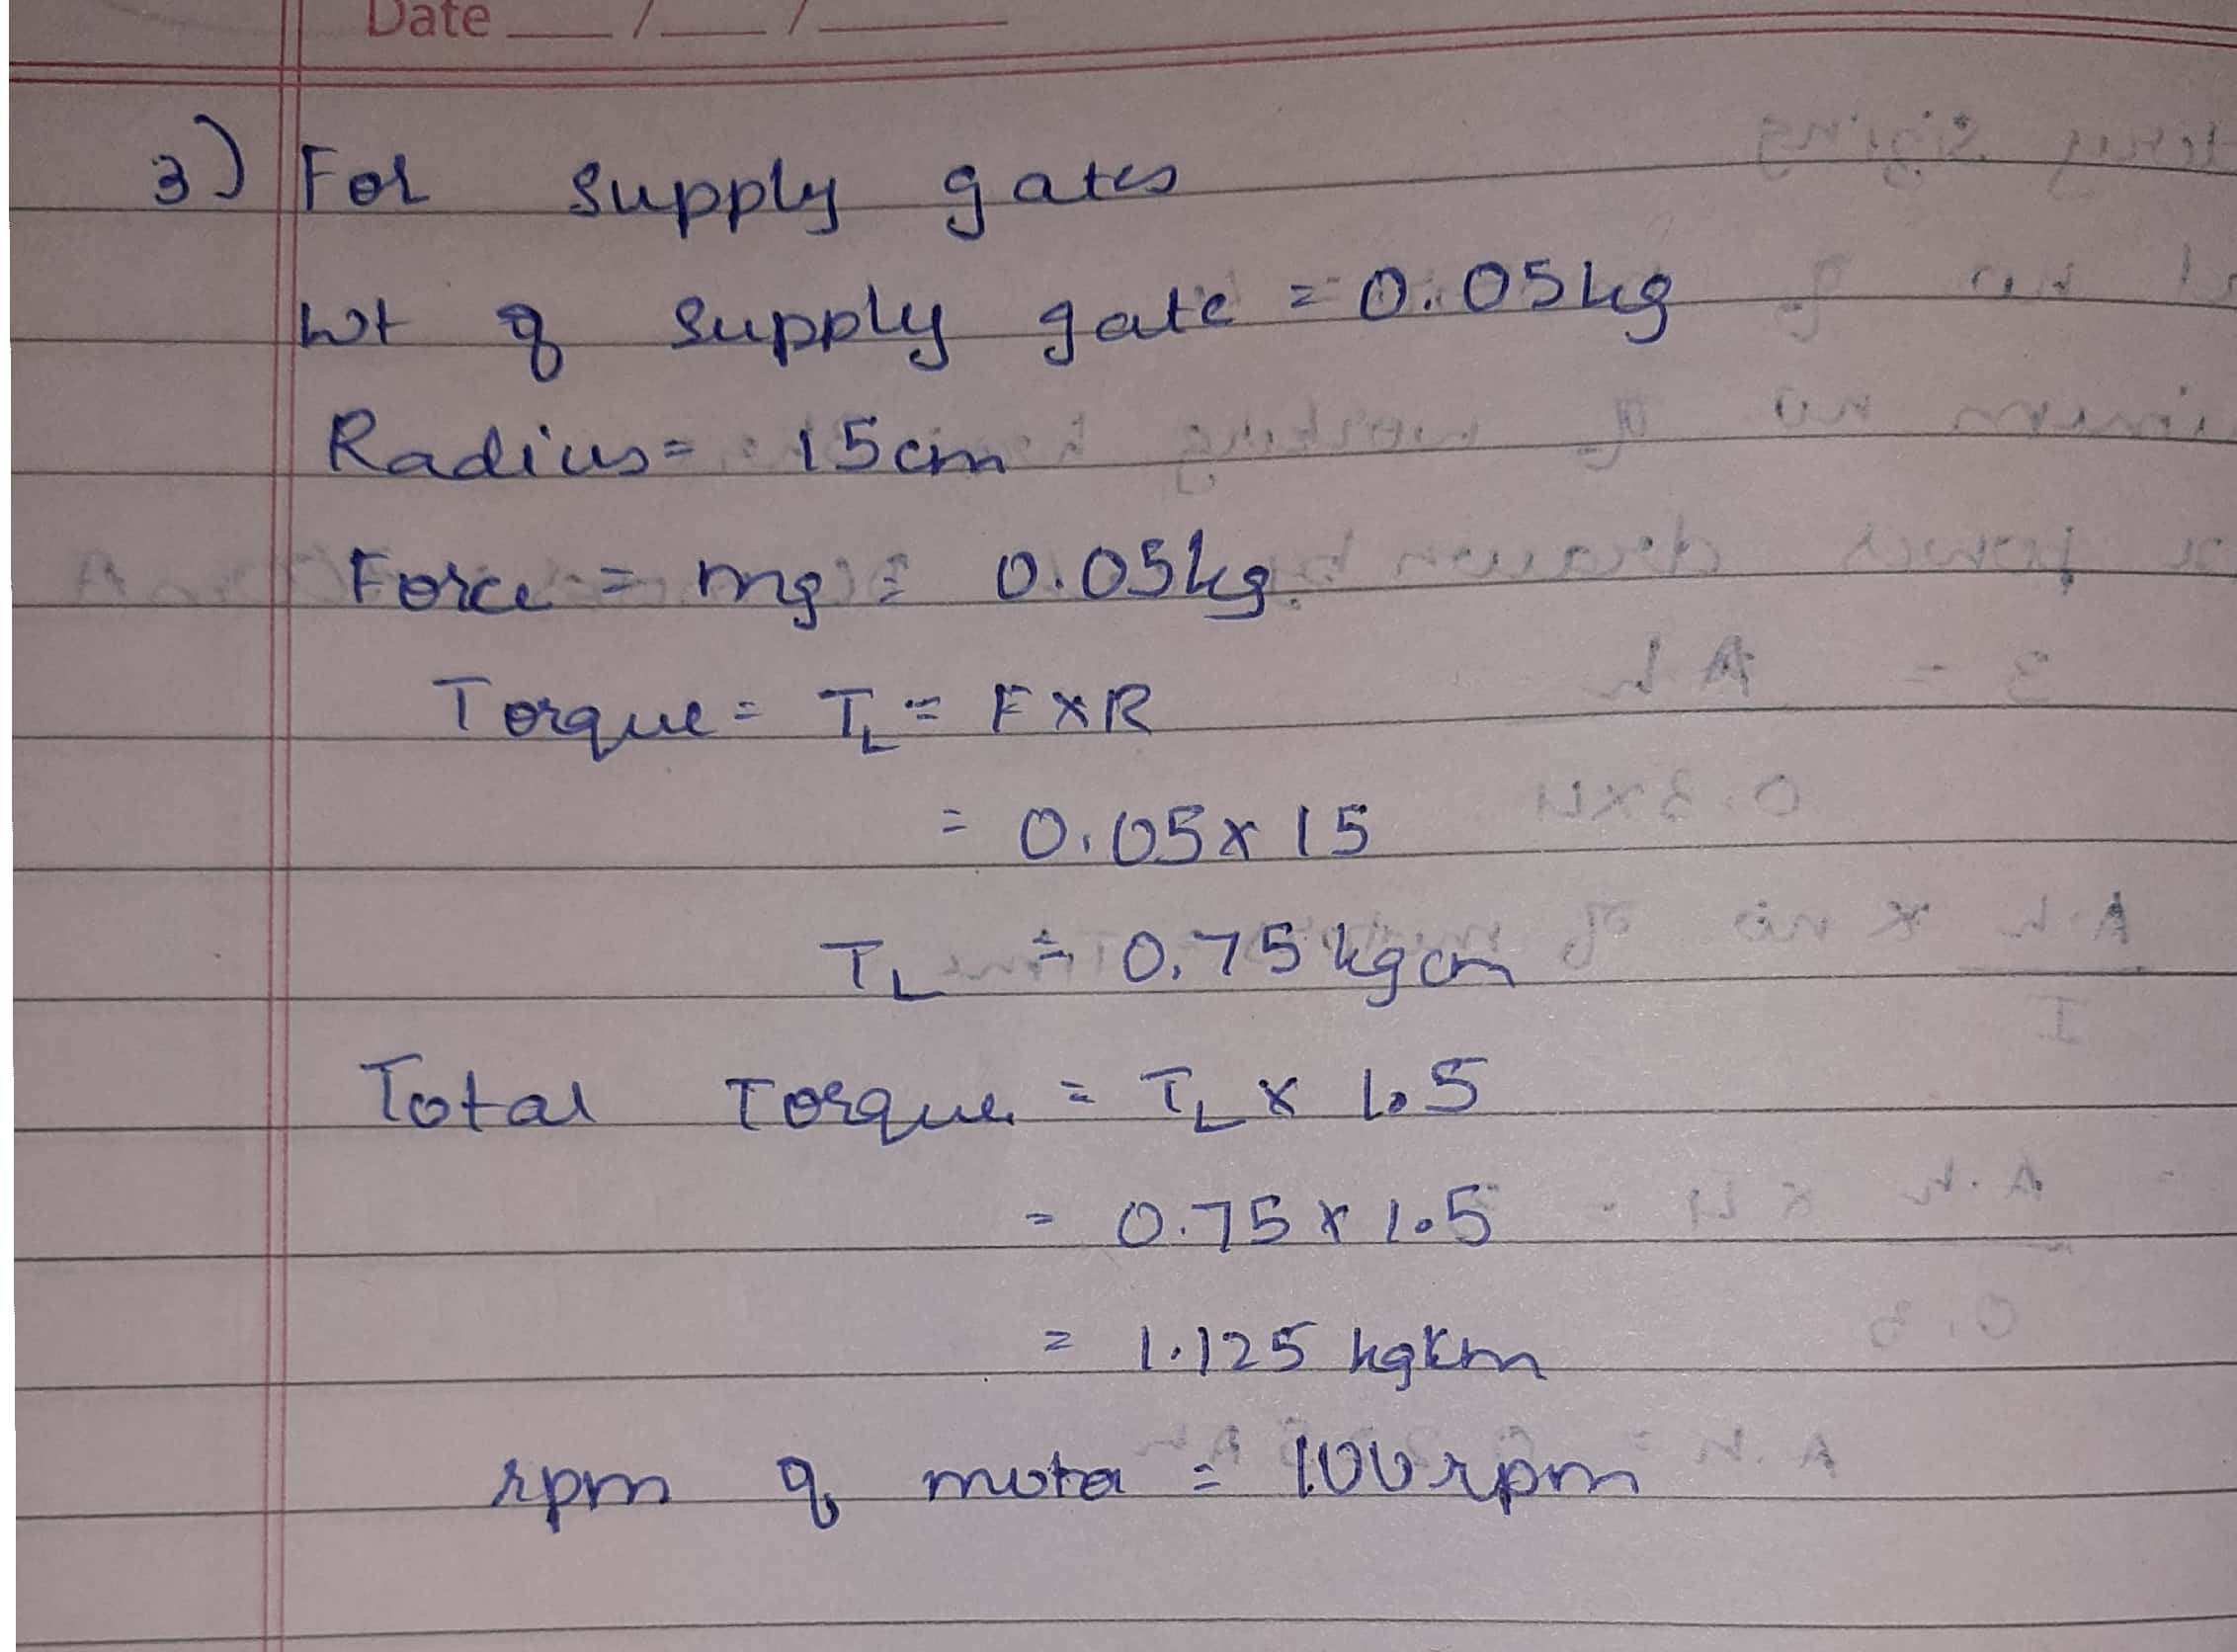 Date __/__/____
3) For supply gates
Wt of supply gate = 0.05kg
Radius = 15cm
Force = mg = 0.05kg.
Torque = TL = F×R
= 0.05×15
TL = 0.75 kgcm
Total Torque = TL × 1.5
= 0.75 × 1.5
= 1.125 kgcm
rpm of motor = 100rpm